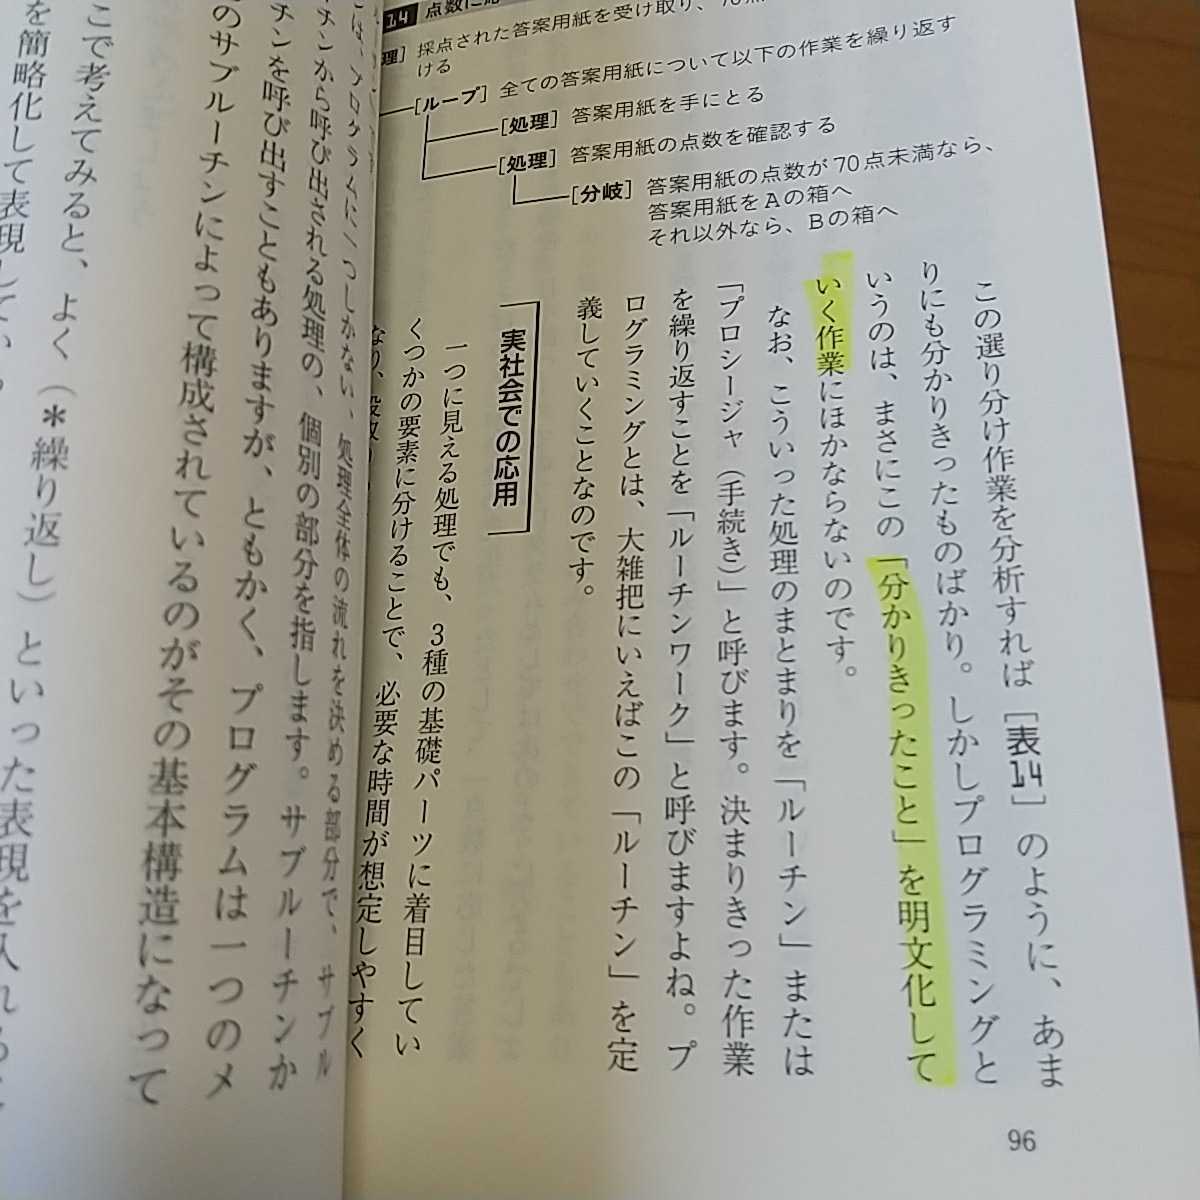 14 点数に応
理］採点された答案用紙を受け取り、70点
ける
［ループ］全ての答案用紙について以下の作業を繰り返す
［処理］答案用紙を手にとる
［処理］答案用紙の点数を確認する
［分岐］答案用紙の点数が70点未満なら、
答案用紙をAの箱へ
それ以外なら、Bの箱へ
この選り分け作業を分析すれば［表14］のように、あま
りにも分かりきったものばかり。しかしプログラミングと
いうのは、まさにこの「分かりきったこと」を明文化して
いく作業にほかならないのです。
なお、こういった処理のまとまりを「ルーチン」または
「プロシージャ（手続き）」と呼びます。決まりきった作業
を繰り返すことを「ルーチンワーク」と呼びますよね。プ
ログラミングとは、大雑把にいえばこの「ルーチン」を定
義していくことなのです。
実社会での応用
一つに見える処理でも、3種の基礎パーツに着目してい
くつかの要素に分けることで、必要な時間が想定しやすく
なり、
は、プログラムに一つしかない、処理全体の流れを決める部分で、サブル
チンから呼び出される処理の、個別の部分を指します。サブルーチンか
チンを呼び出すこともありますが、ともかく、プログラムは一つのメ
のサブルーチンによって構成されているのがその基本構造になって
こで考えてみると、よく（＊繰り返し）といった表現を入れ
を簡略化して表現してい
96